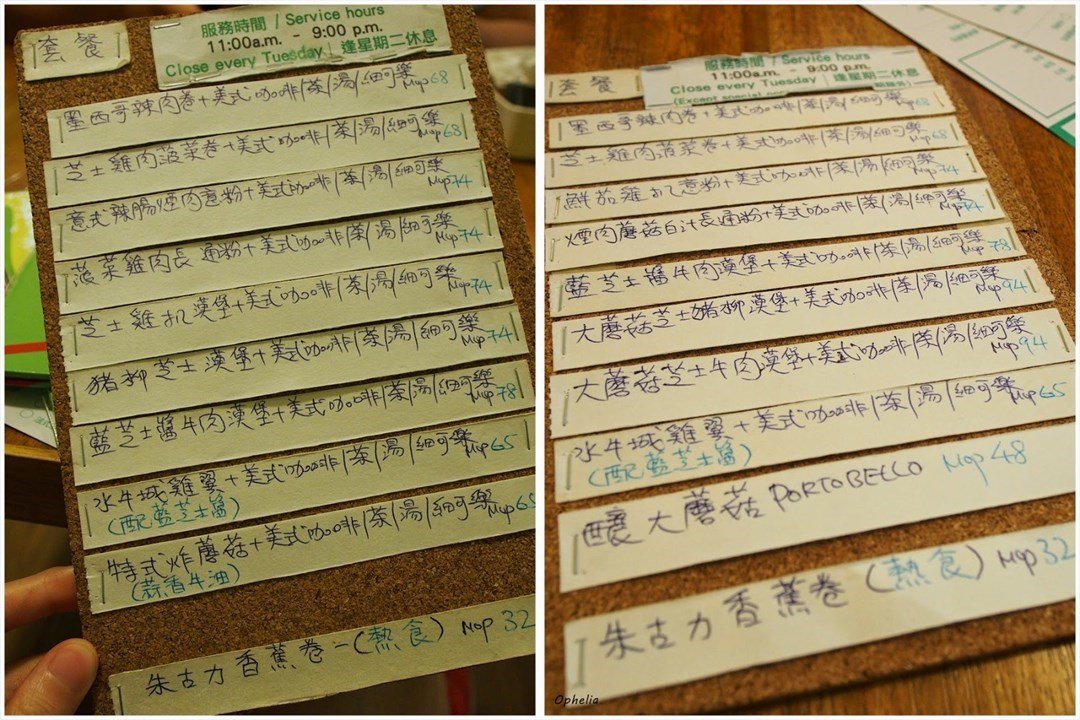 套餐
服務時間 / Service hours
11:00a.m. - 9:00 p.m.
Close every Tuesday | 逢星期二休息
墨西哥辣肉卷+美式咖啡/茶/湯/細可樂 Mop 68
芝士雞肉菠菜卷+美式咖啡/茶/湯/細可樂 Mop 68
意式辣腸煙肉意粉+美式咖啡/茶/湯/細可樂 Mop 74
菠菜雞肉長通粉+美式咖啡/茶/湯/細可樂 Mop 74
芝士雞扒漢堡+美式咖啡/茶/湯/細可樂 Mop 74
豬柳芝士漢堡+美式咖啡/茶/湯/細可樂 Mop 74
藍芝士醬牛肉漢堡+美式咖啡/茶/湯/細可樂 Mop 78
水牛城雞翼+美式咖啡/茶/湯/細可樂 Mop 65
(配藍芝士醬)
特式炸蘑菇+美式咖啡/茶/湯/細可樂 Mop 65
(蒜香牛油)
朱古力香蕉卷-(熱食) Mop 32
套餐
服務時間 / Service hours
11:00a.m. - 9:00 p.m.
Close every Tuesday | 逢星期二休息
(Except special
墨西哥辣肉卷+美式咖啡/茶/湯/細可樂 Mop 68
芝士雞肉菠菜卷+美式咖啡/茶/湯/細可樂 Mop 68
鮮茄雞扒意粉+美式咖啡/茶/湯/細可樂 Mop 74
煙肉蘑菇白汁長通粉+美式咖啡/茶/湯/細可樂 Mop 74
藍芝士醬牛肉漢堡+美式咖啡/茶/湯/細可樂 Mop 78
大蘑菇芝士豬柳漢堡+美式咖啡/茶/湯/細可樂 Mop 94
大蘑菇芝士牛肉漢堡+美式咖啡/茶/湯/細可樂 Mop 94
水牛城雞翼+美式咖啡/茶/湯/細可樂 Mop 65
(配藍芝士醬)
釀大蘑菇 PORTOBELLO Mop 48
朱古力香蕉卷(熱食) Mop 32
Ophelia